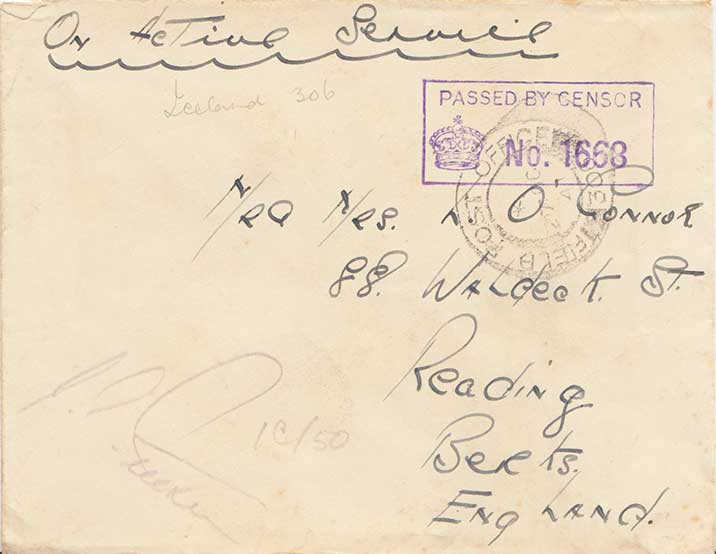 On Active Service
Iceland 306
PASSED BY CENSOR
No. 1668
FIELD POST OFFICE 306
41
Mr & Mrs. O Connor
88. Waldeck. St.
Reading
Berks.
England.
1C/50